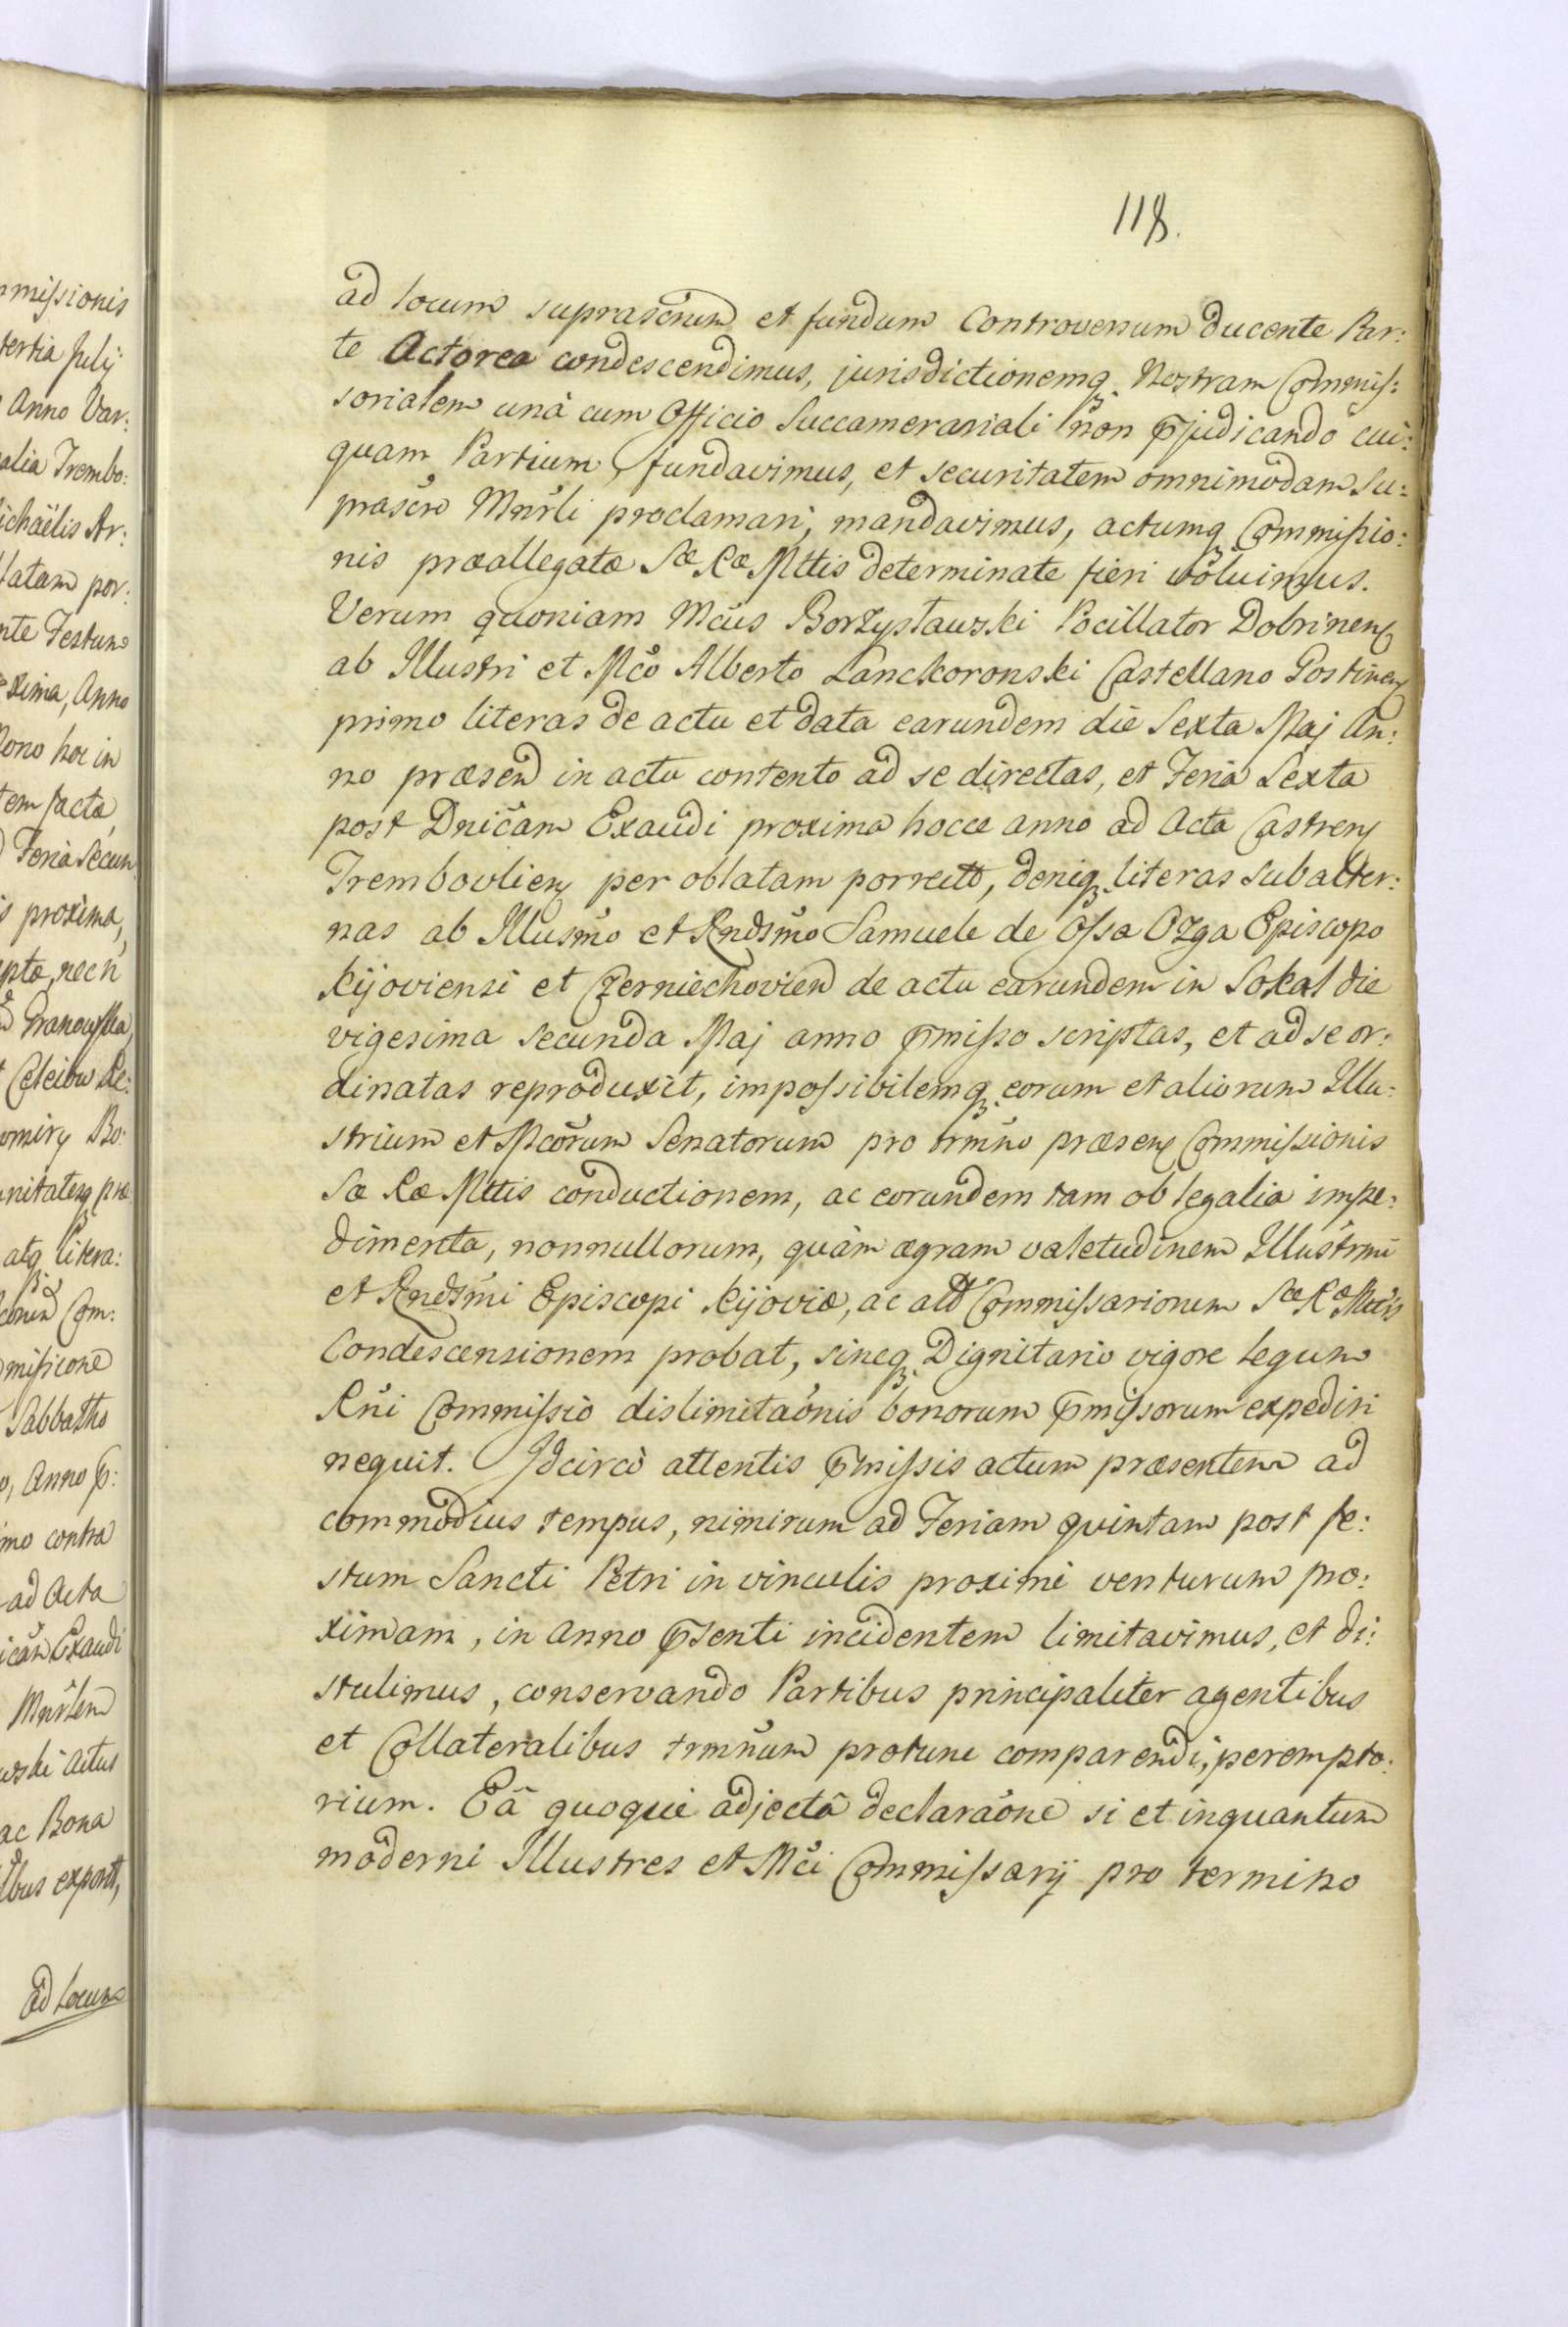 118.
ad locum suprascrum et fundum Controversum ducente Par:
te Actorea condescendimus, jurisdictionemq Nostram Commis:
sorialem unà cum Officio Succamerariali non pjudicando cui:
quam Partium, fundavimus, et securitatem omnimodam su:
prascro Mnrli proclamari, mandavimus, actumq Commissio:
nis præallegatæ Sæ Ræ Mttis determinate fieri voluimus.
Verum quoniam Mcus Borzysławski Pocillator Dobrinens
ab Illustri et Mco Alberto Lanckoronski Castellano Gostinens
primo literas de actu et data earundem die Sexta Maj An:
no præsend in actu contento ad se directas, et Feria Sexta
post Dnicam Exaudi proxima hocce anno ad Acta Castrens
Trembovliens per oblatam porrectt, deniq literas subalter:
nas ab Illusmo et Rndsmo Samuele de Ossa Ozga Episcopo
Kijoviensi et Czerniechovien de actu earundem in Sokal die
vigesima secunda Maj anno pmisso scriptas, et ad se or:
dinatas reproduxit, impossibilemq eorum et aliorum Illu:
strium et Mcorum Senatorum pro trmno præsens Commissionis
Sæ Ræ Mttis conductionem, ac eorundem tam ob legalia impe:
dimenta, nonnullorum, quàm ægram valetudinem Illustrmi
et Rndsmi Episcopi Kijoviæ, ac Commissariorum Sæ Ræ Mttis
Condescensionem probat, sineq Dignitario vigore legum
Rni Commissio dislimitaonis bonorum pmissorum expediri
nequit. Idcircò attentis pmissis actum præsentem ad
commodius tempus, nimirum ad Feriam quintam post fe:
stum Sancti Petri in vinculis proximè venturum pro:
ximam, in anno psenti incidentem limitavimus, et di:
stulimus, conservando Partibus principaliter agentibus
et Collateralibus trmnum protunc comparendi, perempto:
rium. Eâ quoque adjectâ declaraone si et inquantum
moderni Illustres et Mci Commissarij pro termino
missionis
tertia Julij
Anno Var:
alia Trembo:
ichaëlis Ar:
latam por:
nte Festum
xima, Anno
Nono hoc in
tem facta
Feria Secun
s proxima,
ptæ, nec n
nitatesq præ
atq litera:
Com:
Sabbatho
, Anno p:
imo contra
ad Acta
icam Exaudi
Mnrlem
wski Actus
ac Bona
Ad Locum